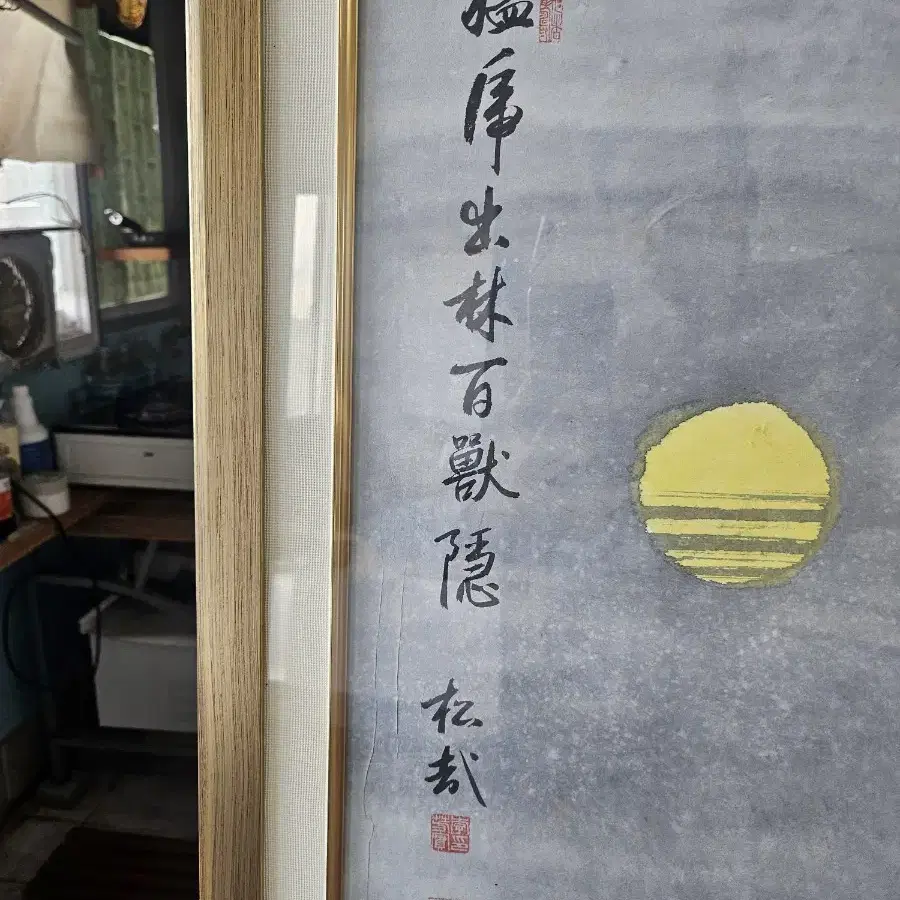 猛虎出林百獸隱
松哉